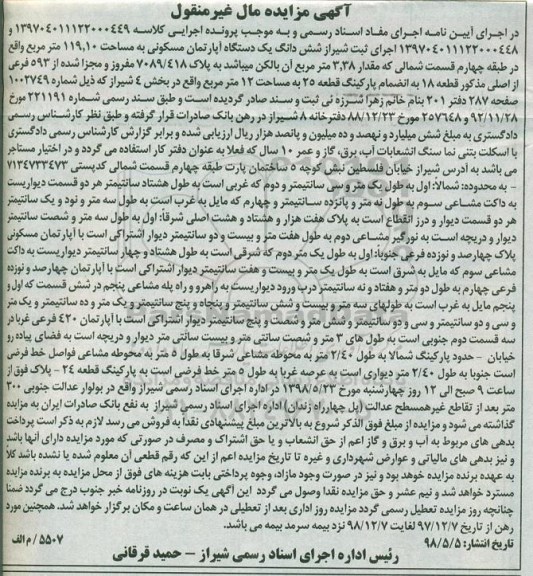 آگهی مزایده مال غیرمنقول
در اجرای آیین نامه اجرای مفاد اسناد رسمی و به موجب پرونده اجرایی کلاسه ۱۳۹۷۰۴۰۱۱۱۲۲۰۰۰۴۴۹ و
۱۳۹۷۰۴۰۱۱۱۲۲۰۰۰۴۴۸ اجرای ثبت شیراز شش دانگ یک دستگاه آپارتمان مسکونی به مساحت ۱۱۹,۱۰ متر مربع واقع
در طبقه چهارم قسمت شمالی که مقدار ۳,۳۸ متر مربع آن بالکن میباشد به پلاک ۷۰۸۹/۴۱۸ مفروز و مجزا شده از ۵۹۳ فرعی
از اصلی مذکور قطعه ۱۸ به انضمام پارکینگ قطعه ۲۵ به مساحت ۱۲ متر مربع واقع در بخش ۴ شیراز که ذیل شماره ۱۰۰۳۷۴۹
صفحه ۲۸۷ دفتر ۲۰۱ بنام خانم زهرا شرزه ئی ثبت و سند صادر گردیده است و طبق سند رسمی شماره ۲۲۱۱۹۱ مورخ
۹۲/۱۱/۲۸ و ۲۰۷۶۴۸ مورخ ۸۸/۱۲/۲۳ دفترخانه ۸ شیراز در رهن بانک صادرات قرار گرفته و طبق نظر کارشناس رسمی
دادگستری به مبلغ شش میلیارد و نهصد و ده میلیون و پانصد هزار ریال ارزیابی شده و برابر گزارش کارشناس رسمی دادگستری
با اسکلت بتنی نما سنگ انشعابات آب، برق، گاز و عمر ۱۰ سال که فعلا به عنوان دفتر کار استفاده می گردد و در اختیار مستاجر
می باشد به آدرس شیراز خیابان فلسطین نبش کوچه ۵ ساختمان پارت طبقه چهارم قسمت شمالی کدپستی ۷۱۳۴۷۳۳۴۷۳
- به محدوده: شمالا: اول به طول یک متر و سی سانتیمتر و دوم که غربی است به طول هشتاد سانتیمتر هر دو قسمت دیواریست
به داکت مشاعی سوم به طول نه متر و پانزده سانتیمتر و چهارم که مایل به غرب است به طول سه متر و نود و یک سانتیمتر
هر دو قسمت دیوار و درز انقطاع است به پلاک هفت هزار و هشتاد و هشت اصلی شرقا: اول به طول سه متر و شصت سانتیمتر
دیوار و دریچه است به نورگیر مشاعی دوم به طول هفت متر و بیست و دو سانتیمتر دیوار اشتراکی است با آپارتمان مسکونی
پلاک چهارصد و نوزده فرعی جنوبا: اول به طول یک متر دوم که شرقی است به طول هشتاد و چهار سانتیمتر دیواریست به داکت
مشاعی سوم که مایل به شرق است به طول یک متر و بیست و هفت سانتیمتر دیوار اشتراکی است با آپارتمان چهارصد و نوزده
فرعی چهارم به طول دو متر و هفتاد و نه سانتیمتر درب ورود دیواریست به راهرو و راه پله مشاعی پنجم در شش قسمت که اول و
پنجم مایل به غرب است به طولهای سه متر و بیست و شش سانتیمتر و پنجاه و پنج سانتیمتر و یک متر و ده سانتیمتر و یک متر
و سی و دو سانتیمتر و سی و دو سانتیمتر و شش متر و شصت و پنج سانتیمتر دیوار اشتراکی است با آپارتمان ۴۲۰ فرعی غربا در
سه قسمت دوم جنوبی است به طول های ۳ متر و شصت سانتی متر و بیست سانتی متر دیوار و دریچه است به فضای پیاده رو
خیابان – حدود پارکینگ شمالا به طول ۲/۴۰ متر به محوطه مشاعی شرقا به طول ۵ متر به محوطه مشاعی فواصل خط فرضی
است جنوبا به طول ۲/۴۰ متر دیواری است به عرصه غربا به طول ۵ متر خط فرضی است به پارکینگ قطعه ۲۴ – پلاک فوق از
ساعت ۹ صبح الی ۱۲ روز چهارشنبه مورخ ۱۳۹۸/۵/۲۳ در اداره اجرای اسناد رسمی شیراز واقع در بولوار عدالت جنوبی ۳۰۰
متر بعد از تقاطع غیرهمسطح عدالت (پل چهارراه زندان) اداره اجرای اسناد رسمی شیراز به نفع بانک صادرات ایران به مزایده
گذاشته می شود و مزایده از مبلغ فوق الذکر شروع به بالاترین مبلغ پیشنهادی نقدا به فروش می رسد لازم به ذکر است پرداخت
بدهی های مربوط به آب و برق و گاز اعم از حق انشعاب و یا حق اشتراک و مصرف در صورتی که مورد مزایده دارای آنها باشد
و نیز بدهی های مالیاتی و عوارض شهرداری و غیره تا تاریخ مزایده اعم از این که رقم قطعی آن معلوم شده یا نشده باشد کلا
به عهده برنده مزایده خواهد بود و نیز در صورت وجود مازاد، وجوه پرداختی بابت هزینه های فوق از محل مزایده به برنده مزایده
مسترد خواهد شد و نیم عشر و حق مزایده نقدا وصول می گردد این آگهی یک نوبت در روزنامه خبر جنوب درج می گردد ضمنا
چنانچه روز مزایده تعطیل رسمی گردد مزایده روز اداری بعد از تعطیلی در همان ساعت و مکان برگزار خواهد شد. همچنین مورد
رهن از تاریخ ۹۷/۱۲/۷ لغایت ۹۸/۱۲/۷ نزد بیمه سرمد بیمه می باشد.
تاریخ انتشار: ۹۸/۵/۵
۵۵۰۷ / م الف
رئیس اداره اجرای اسناد رسمی شیراز – حمید فرقانی